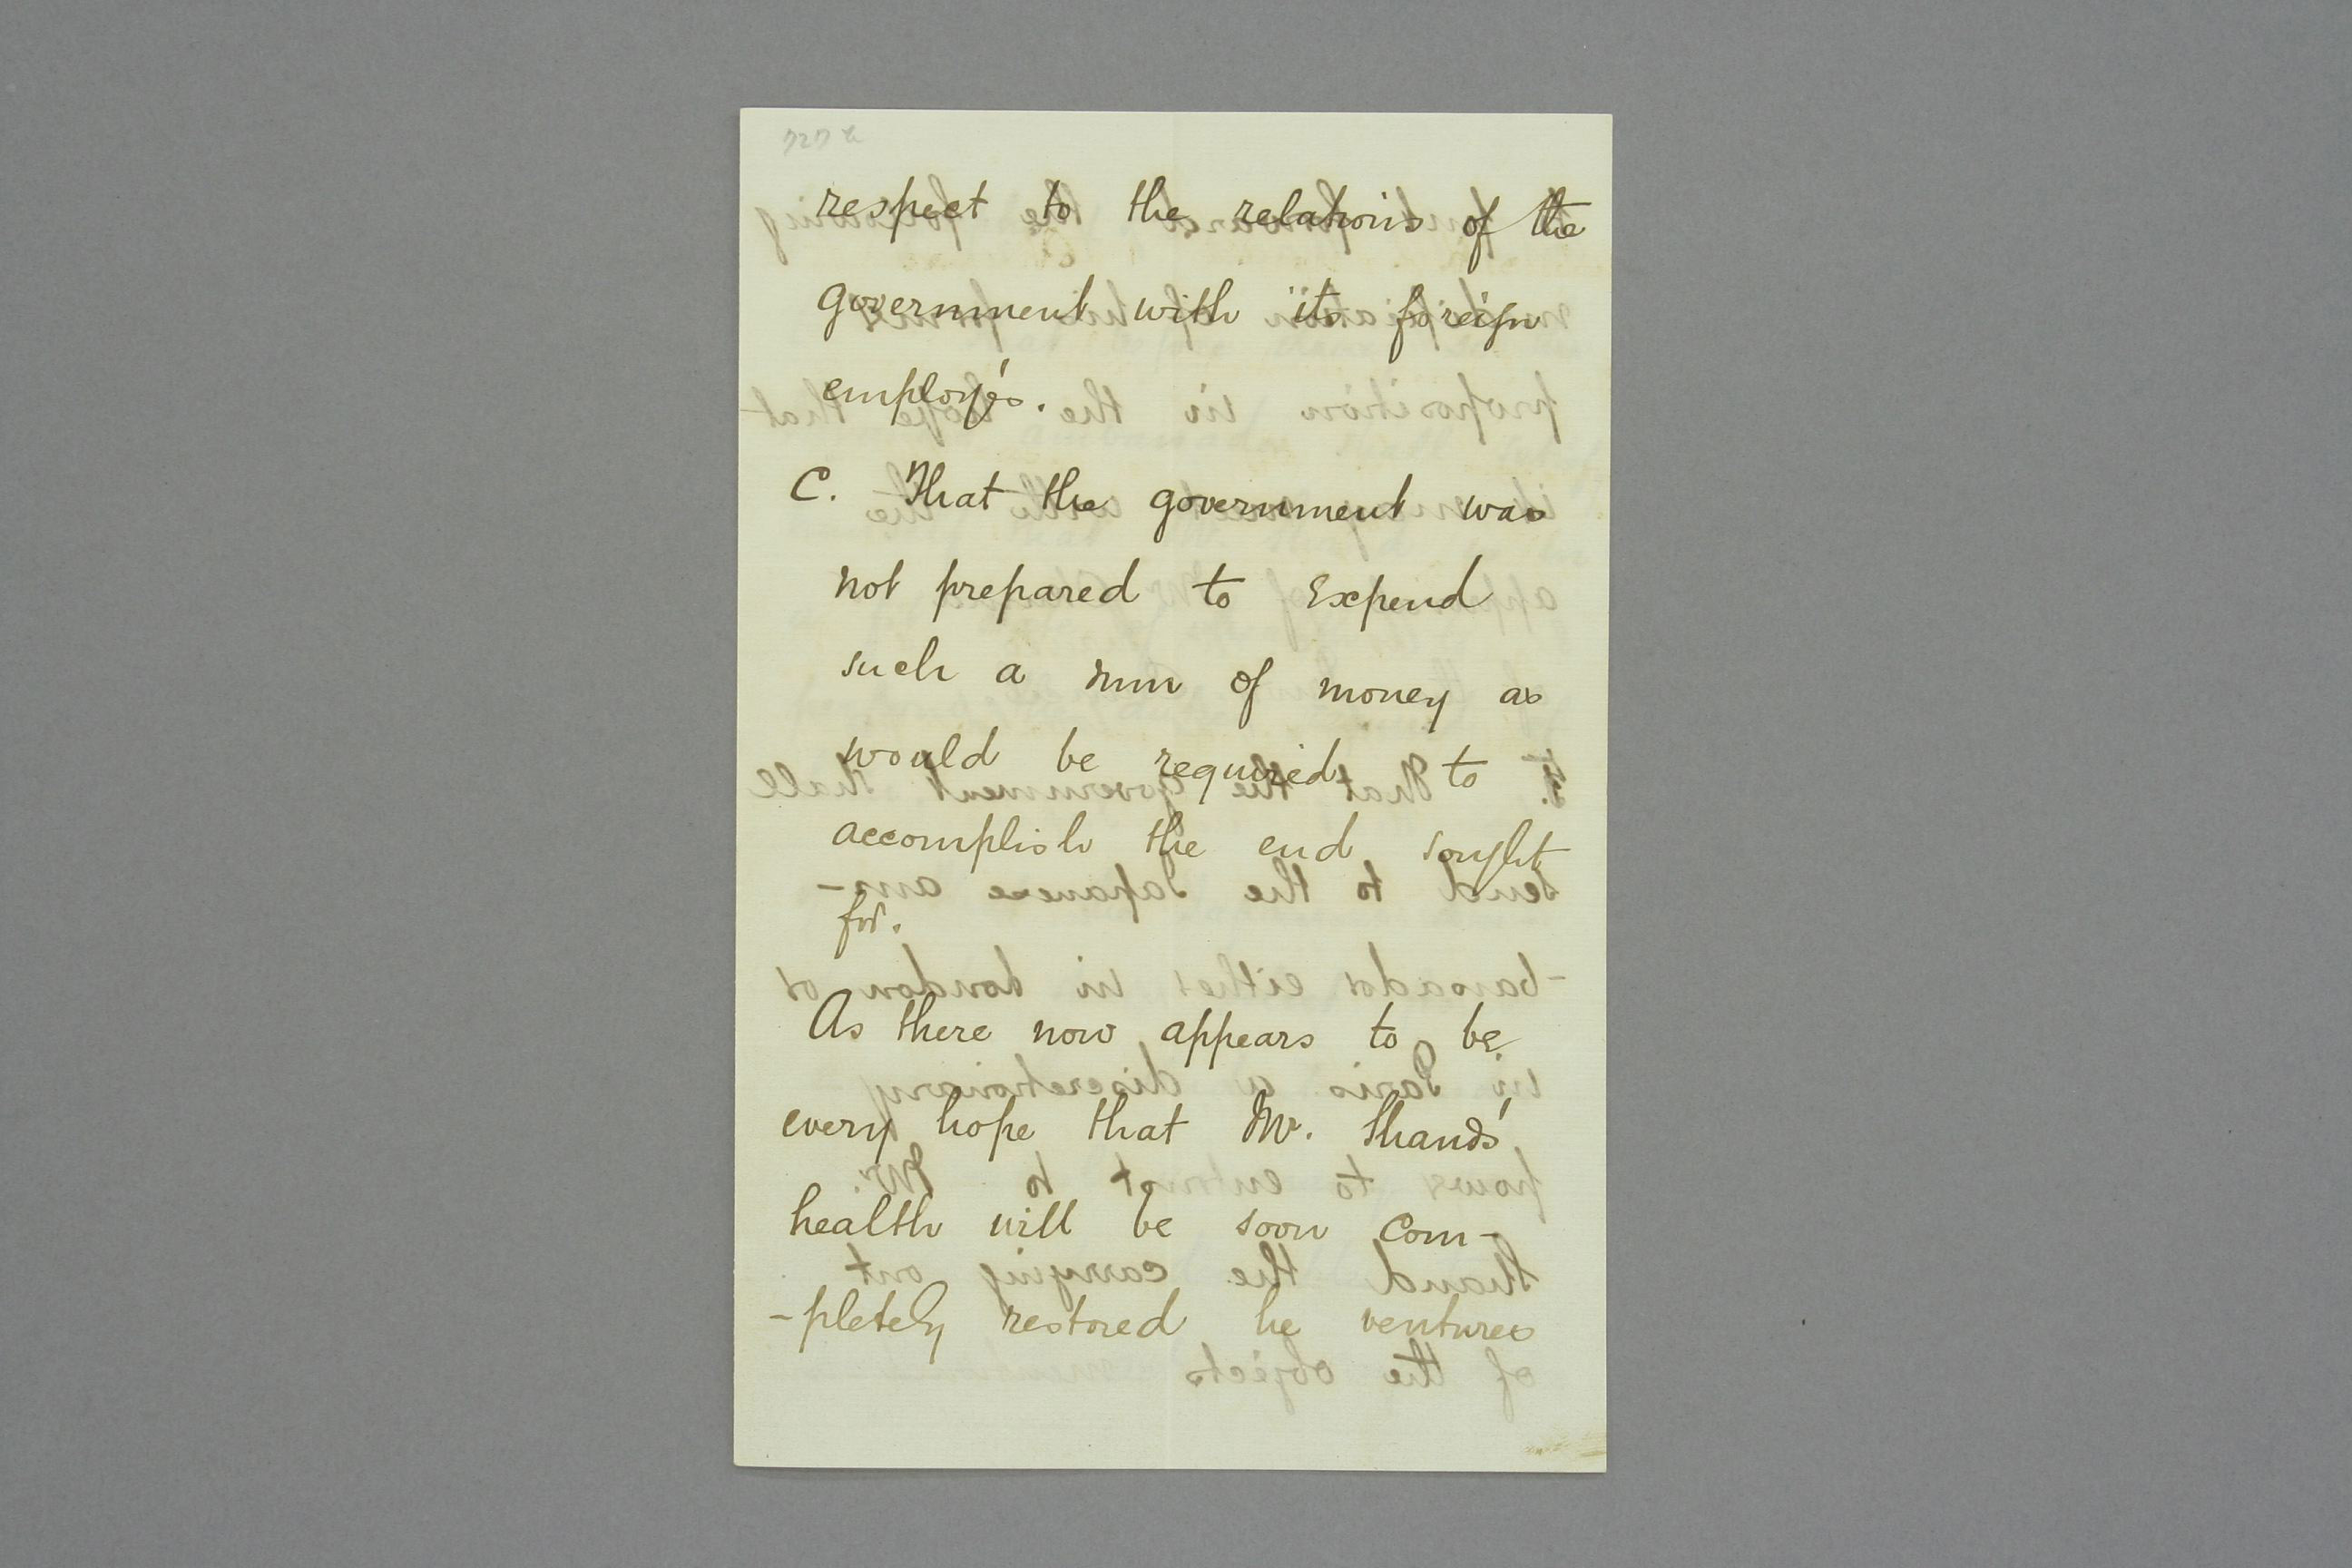 respect to the relations of the
government with its foreign
employés.
C. That the government was
not prepared to Expend
such a sum of money as
would be required to
accomplish the end sought
for.
As there now appears to be
every hope that Mr. Shand's
health will be soon com-
-pletely restored he ventures